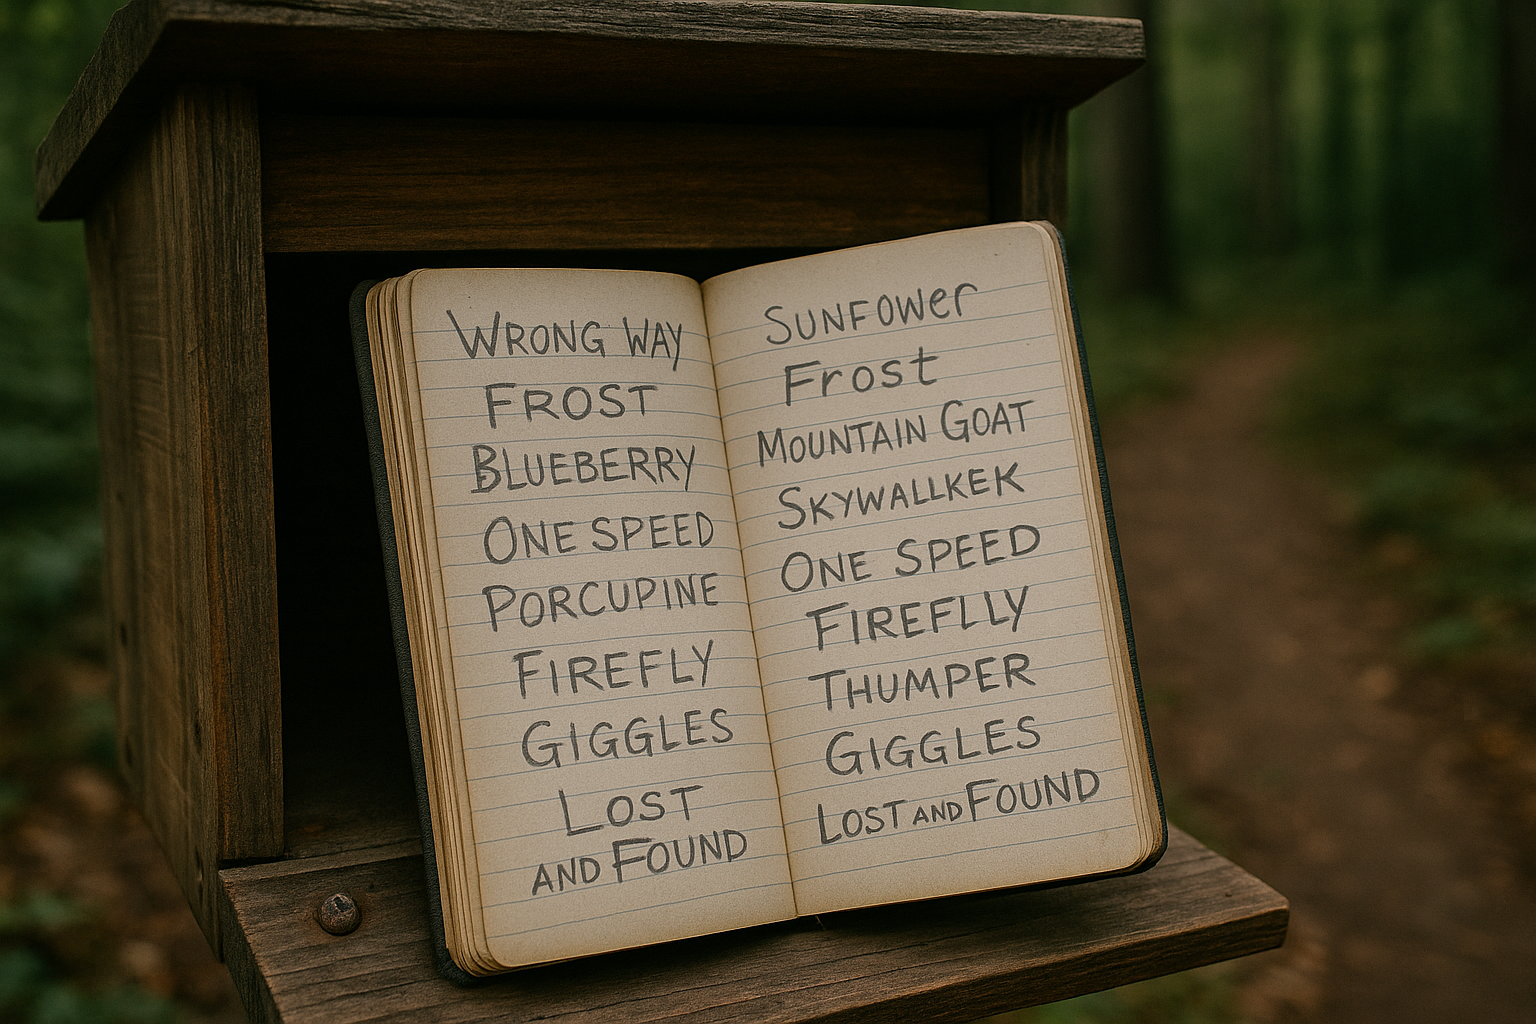 WRONG WAY
FROST
BLUEBERRY
ONE SPEED
PORCUPINE
FIREFLY
GIGGLES
LOST
AND FOUND
SUNFOWer
Frost
MOUNTAIN GOAT
SKYWALLKEK
ONE SPEED
FIREFLLY
THUMPER
GIGGLES
LOST AND FOUND